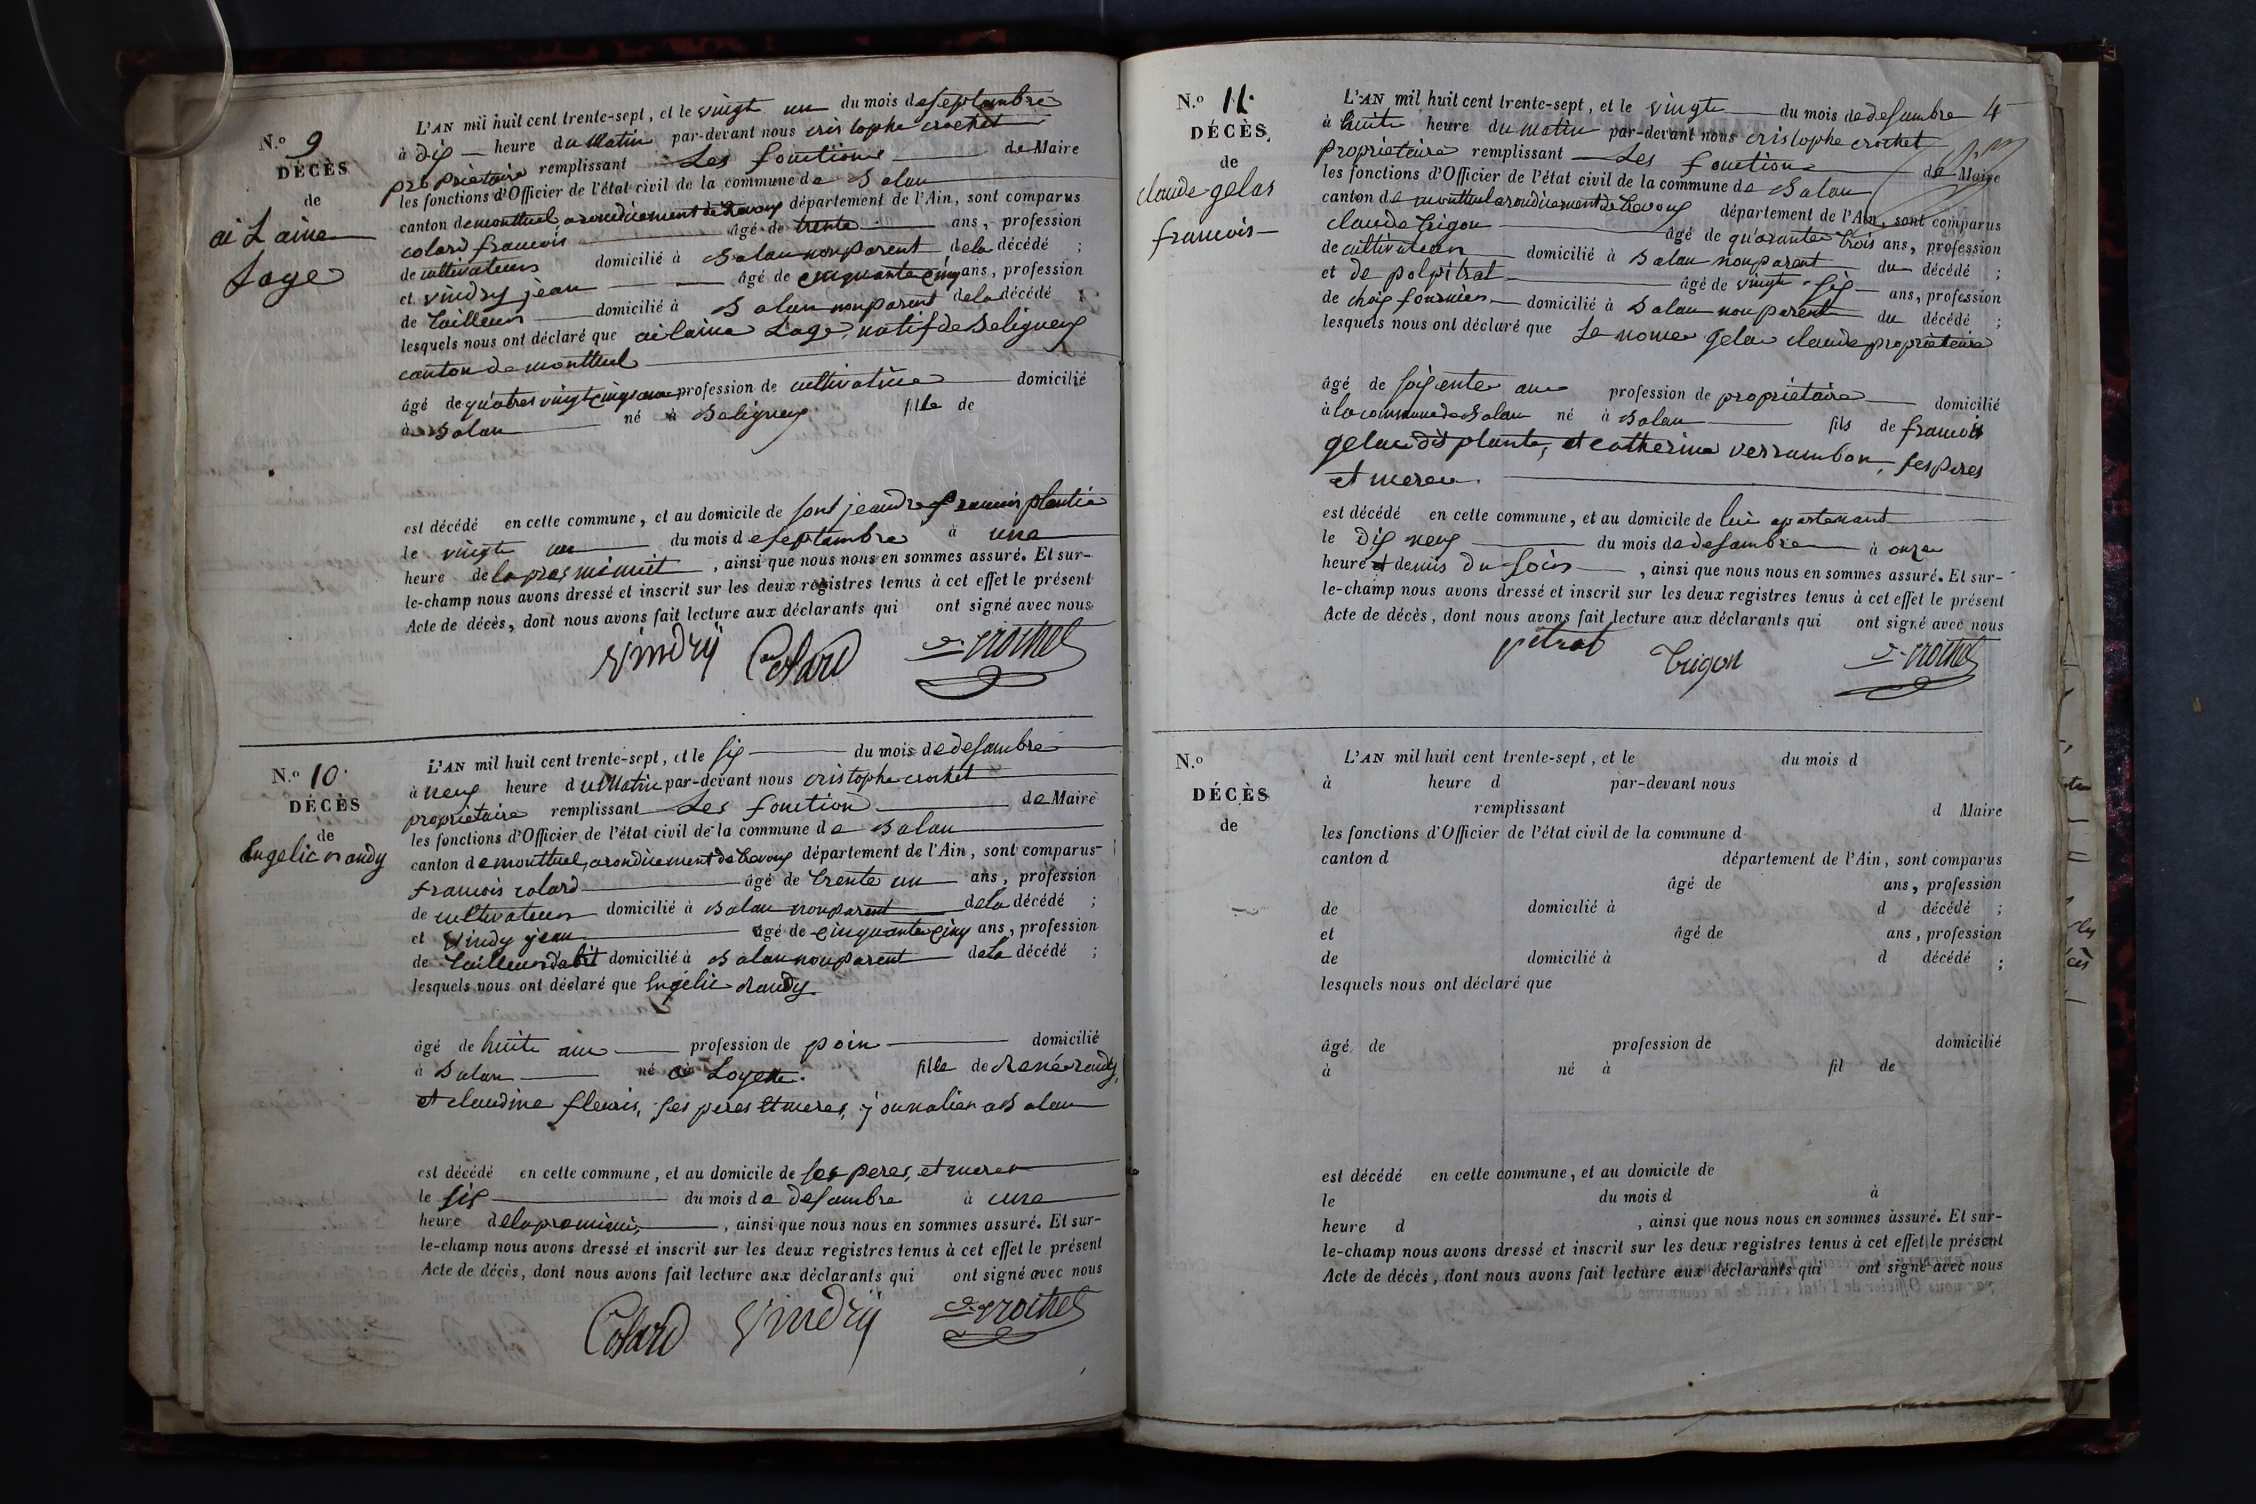 N.º 9
DÉCÈS
de
ai Laine
Sage
L'AN mil huit cent trente-sept, et le vingt un du mois de septambre
à dix heure du Matin par-devant nous cristophe crochet
propriétaire remplissant Les fonction de Maire
les fonctions d'Officier de l'état civil de la commune de Balan
canton de montluel arondicement de trevoux département de l'Ain, sont comparus
colard francois âgé de trente ans, profession
de cultivateur domicilié à Balan non parent de la décédé ;
et vindry jean âgé de cinquante cinq ans, profession
de tailleur domicilié à Balan non parent de la décédé ;
lesquels nous ont déclaré que ailaine Sage, natif de Beligneux
canton de montluel
âgé de quatres vingt cinq ans profession de cultivatrice domicilié
à Balan né à Beligneux fille de
est décédé en cette commune, et au domicile de sont jeandre francois plantie
le vingt un du mois de septambre à une
heure de la pres minuit, ainsi que nous nous en sommes assuré. Et sur-
le-champ nous avons dressé et inscrit sur les deux registres tenus à cet effet le présent
Acte de décès, dont nous avons fait lecture aux déclarants qui ont signé avec nous
Vindry Colard C. Crochet
N.º 10
DÉCÈS
de
Engelic randy
L'AN mil huit cent trente-sept, et le six du mois de desambre
à neuf heure du Matin par-devant nous cristophe crochet
propriétaire remplissant Les fonction de Maire
les fonctions d'Officier de l'état civil de la commune de Balan
canton de montluel, arondicement de trevoux département de l'Ain, sont comparus
francois colard âgé de trente un ans, profession
de cultivateur domicilié à Balan non parent de la décédé ;
et Vindy jean âgé de cinquante cinq ans, profession
de tailleur dabit domicilié à Balan non parent de la décédé ;
lesquels nous ont déclaré que Engelic randy
âgé de huite ans profession de poin domicilié
à Balan né à Loyette fille de René randy,
et claudine fleuris, ses peres et meres, journalier a Balan
est décédé en cette commune, et au domicile de ses peres, et meres
le six du mois de desambre à une
heure de la pre minui, ainsi que nous nous en sommes assuré. Et sur-
le-champ nous avons dressé et inscrit sur les deux registres tenus à cet effet le présent
Acte de décès, dont nous avons fait lecture aux déclarants qui ont signé avec nous
Colard Vindry C. Crochet
N.º 11
DÉCÈS
de
claude gelas
francois
L'AN mil huit cent trente-sept, et le vingt du mois de desambre 4
à huite heure du matin par-devant nous cristophe crochet
propriétaire remplissant Les fonction de Maire
les fonctions d'Officier de l'état civil de la commune de Balan
canton de montluel arondicement de trevoux département de l'Ain, sont comparus
claude trigon âgé de quarante trois ans, profession
de cultivateur domicilié à Balan non parent du décédé ;
et de polpitrat âgé de vingt six ans, profession
de chos fournier domicilié à Balan non parent du décédé ;
lesquels nous ont déclaré que Le nomer gelas claude propriétaire
âgé de soixente ans profession de propriétaire domicilié
à la commune de Balan né à Balan fils de francois
gelas dit plante, et catherine verrambon, ses peres
et meres.
est décédé en cette commune, et au domicile de lui apartenant
le dix neuf du mois de desambre à onze
heure et demis du soir, ainsi que nous nous en sommes assuré. Et sur-
le-champ nous avons dressé et inscrit sur les deux registres tenus à cet effet le présent
Acte de décès, dont nous avons fait lecture aux déclarants qui ont signé avec nous
pitrat trigon C. Crochet
N.º
DÉCÈS
de
L'AN mil huit cent trente-sept, et le du mois d
à heure d par-devant nous
remplissant d Maire
les fonctions d'Officier de l'état civil de la commune d
canton d département de l'Ain, sont comparus
âgé de ans, profession
de domicilié à d décédé ;
et âgé de ans, profession
de domicilié à d décédé ;
lesquels nous ont déclaré que
âgé de profession de domicilié
à né à fil de
est décédé en cette commune, et au domicile de
le du mois d à
heure d , ainsi que nous nous en sommes assuré. Et sur-
le-champ nous avons dressé et inscrit sur les deux registres tenus à cet effet le présent
Acte de décès, dont nous avons fait lecture aux déclarants qui ont signé avec nous